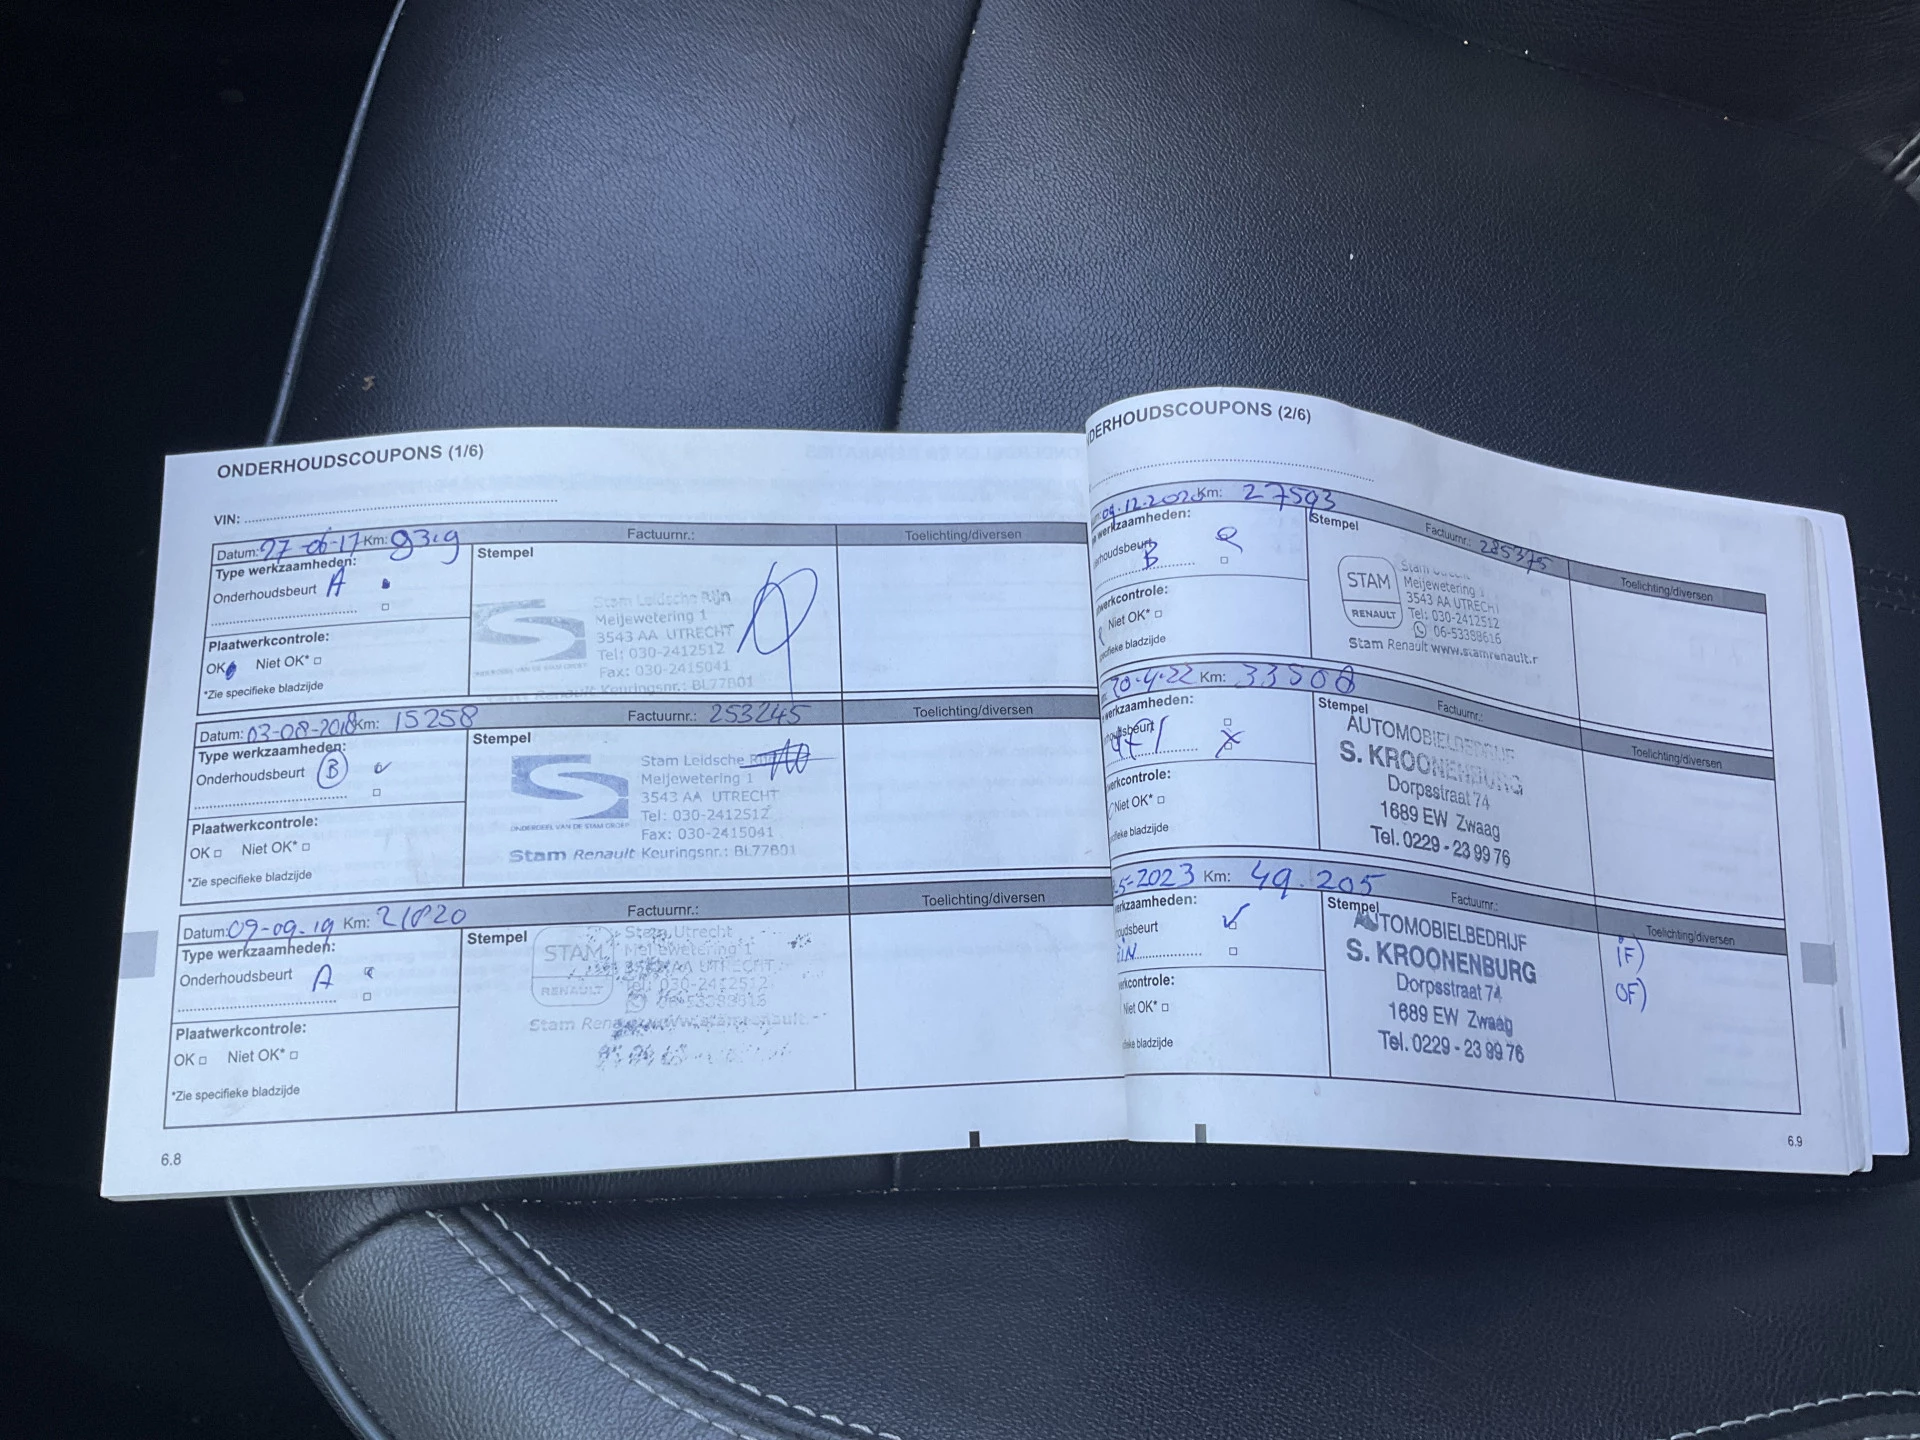 ONDERHOUDSCOUPONS (1/6)
VIN:
Datum: 27-06-17 Km: 9319 Factuurnr.: Toelichting/diversen
Type werkzaamheden:
Onderhoudsbeurt A
Plaatwerkcontrole:
OK Niet OK*
*Zie specifieke bladzijde
Stempel
Stam Leidsche Rijn
Meijewetering 1
3543 AA UTRECHT
Tel: 030-2412512
Fax: 030-2415041
Keuringsnr.: BL77B01
Datum: 03-08-2018 Km: 15258 Factuurnr.: 253245 Toelichting/diversen
Type werkzaamheden:
Onderhoudsbeurt B
Plaatwerkcontrole:
OK Niet OK*
*Zie specifieke bladzijde
Stempel
Stam Leidsche
Meijewetering 1
3543 AA UTRECHT
Tel: 030-2412512
Fax: 030-2415041
ONDERDEEL VAN DE STAM GROEP
Stam Renault Keuringsnr.: BL77B01
Datum: 09-09-19 Km: 21820 Factuurnr.: Toelichting/diversen
Type werkzaamheden:
Onderhoudsbeurt A
Plaatwerkcontrole:
OK Niet OK*
*Zie specifieke bladzijde
Stempel
STAM
RENAULT
Stam Utrecht
Meijewetering 1
3543 AA UTRECHT
Tel: 030-2412512
06-53388616
6.8
DERHOUDSCOUPONS (2/6)
09.12.2020 Km: 27593 Factuurnr.: 285375 Toelichting/diversen
werkzaamheden:
houdsbeurt
B
werkcontrole:
Niet OK*
pecifieke bladzijde
Stempel
STAM
RENAULT
Meijewetering
3543 AA UTRECHT
Tel: 030-2412512
06-53388616
Stam Renault www.stamrenault.r
20-4-22 Km: 33508 Factuurnr.: Toelichting/diversen
werkzaamheden:
dsbeurt
werkcontrole:
Niet OK*
ifieke bladzijde
Stempel
AUTOMOBIELBEDRIJF
S. KROONENBURG
Dorpsstraat 74
1689 EW Zwaag
Tel. 0229 - 23 99 76
5-2023 Km: 49.205 Factuurnr.: Toelichting/diversen
erkzaamheden:
oudsbeurt
erkcontrole:
Niet OK*
ifieke bladzijde
Stempel
AUTOMOBIELBEDRIJF
S. KROONENBURG
Dorpsstraat 74
1689 EW Zwaag
Tel. 0229 - 23 99 76
iF)
OF)
6.9